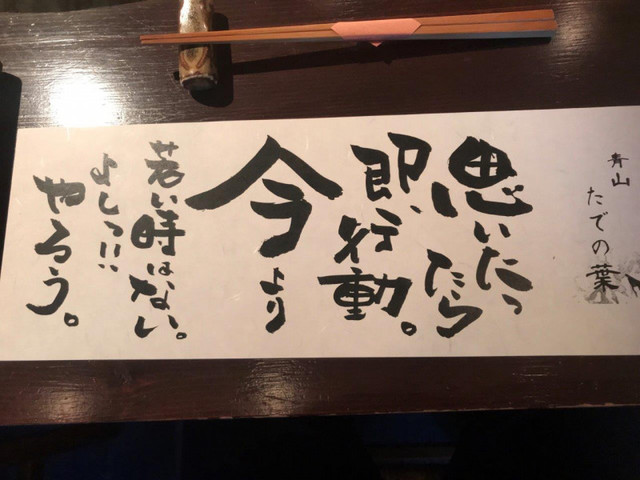 青山
たでの葉
思いたっ
たら
即、行動。
今より
若い時はない。
よしっ!!
やろう。